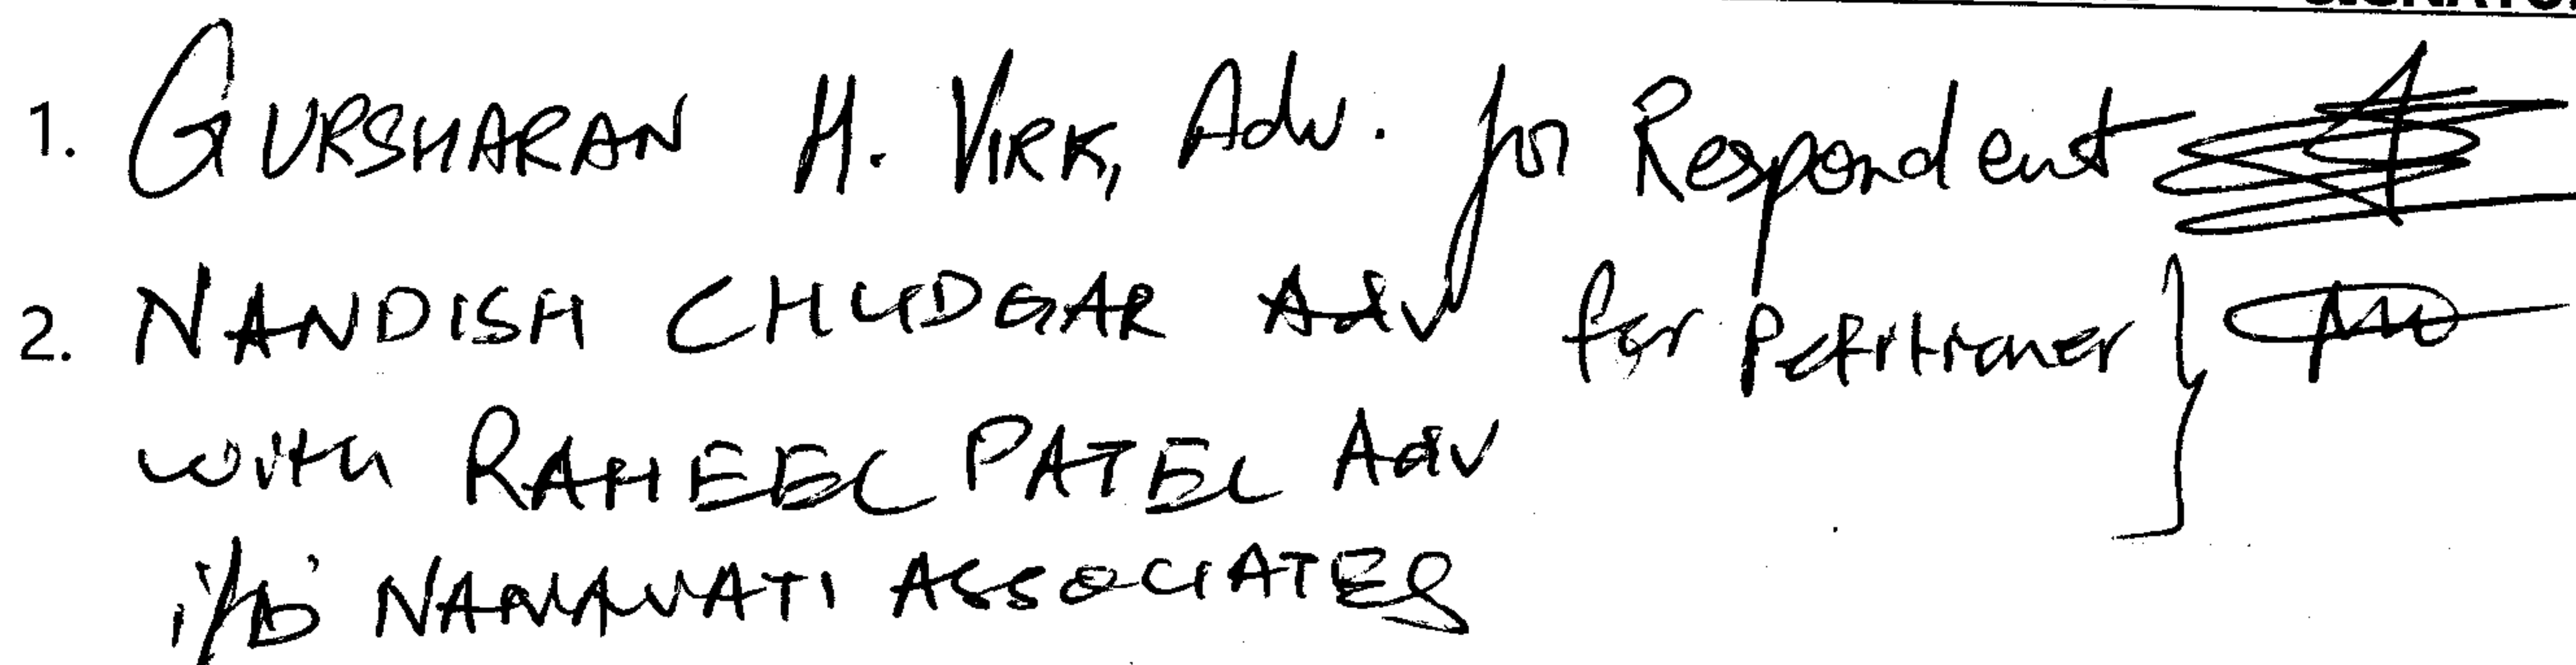 1. GURSHARAN H. VIRK, Adv. for Respondent
2. NANDISH CHUDGAR Adv for Petitioner
with RAHEEL PATEL Adv
i/b NANAVATI ASSOCIATES